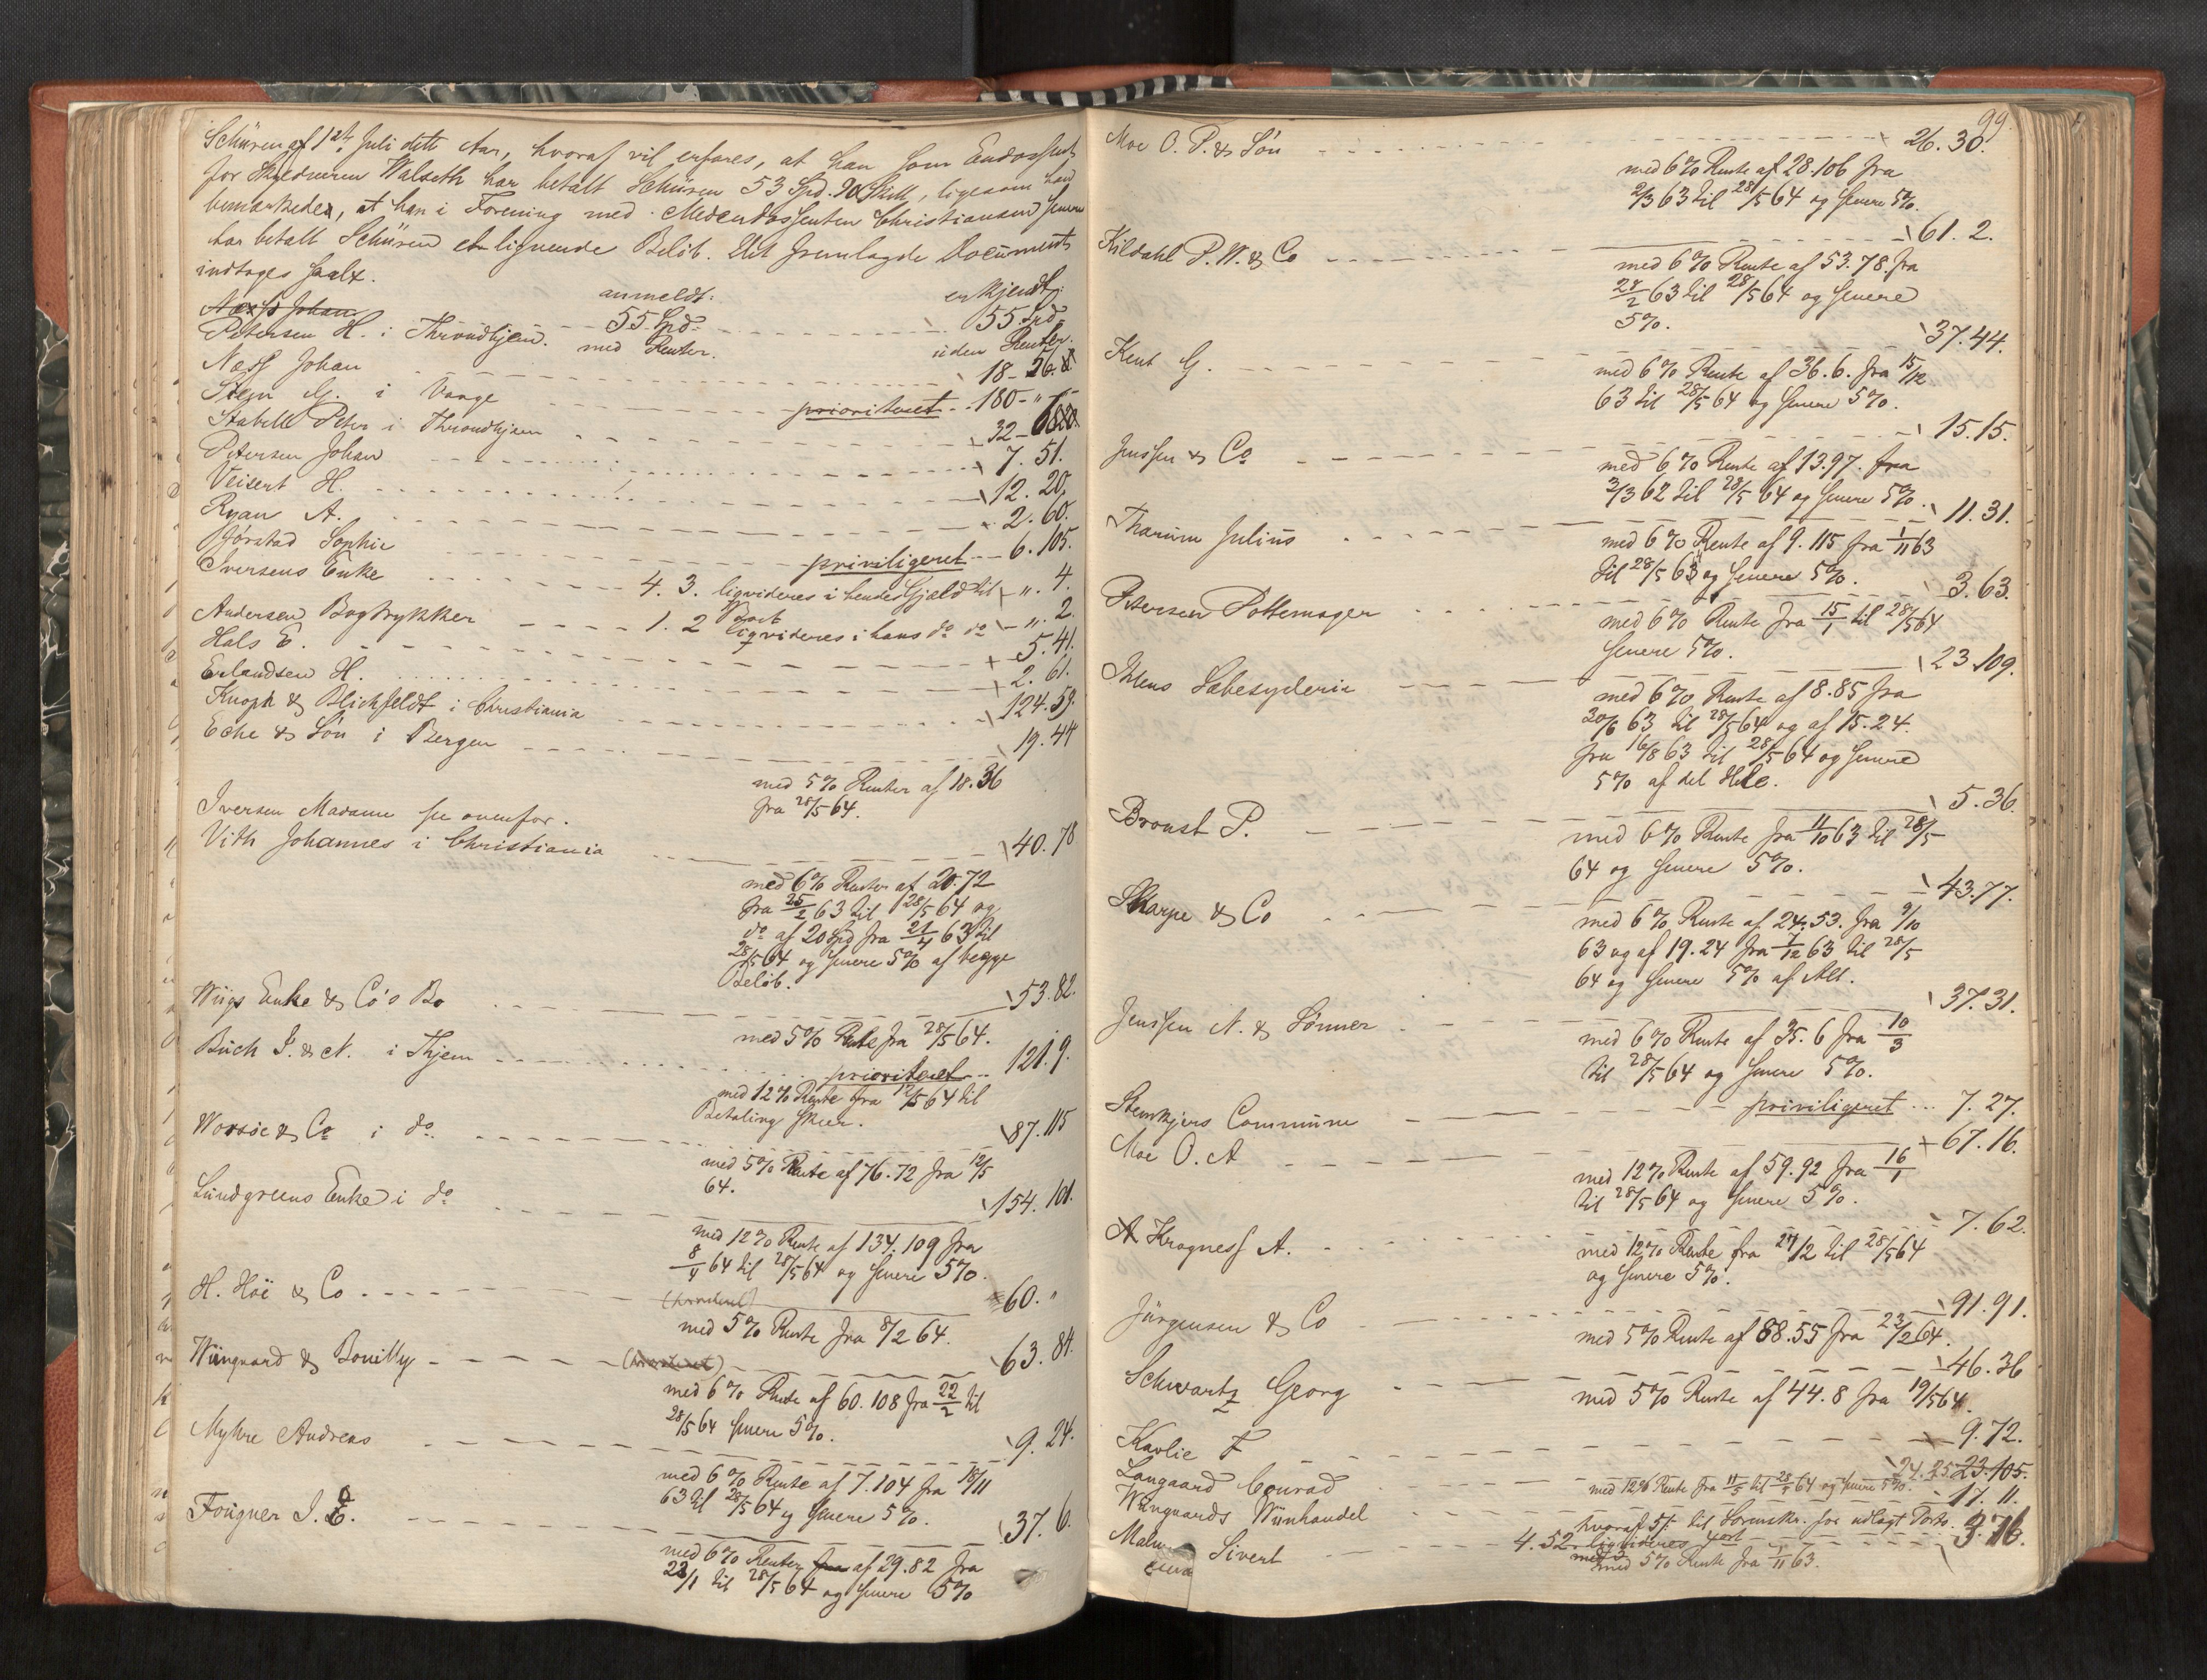 Schüren af 1st Juli dette Aar, hvoraf vil erfares, at han som Endossent
for Walseth har betalt Schüren 53 Spd. 90 Skill, ligesom han
bemærkede, at han i Forening med Medendossenten Christiansen senere
har betalt Schüren et lignende Beløb. Det fremlagde Document
indtages saalt.
anmeldt: erkjendt:
Næss Johan
Petersen H. i Throndhjem. 55 Spd. 55 Spd.
med Renter. uden Renter.
Næss Johan 18 - 56.
Stejn G. i Vange prioriteret 180 - " -
Stabell Peter i Throndhjem 32 -
Petersen Johan 7. 51.
Veisert H. 12. 20.
Ryan A. 2. 60.
Jørstad Sophie priviligeret 6. 105.
Iversens Enke 4. 3. liqvideres i hendes Gjeld til ". 4.
Andersen Bogtrykker 1. 2 liqvideres i hans do do ". 2.
Hals E. 5. 41.
Erlandsen H. 2. 61.
Knoph & Blichfeldt i Christiania 124. 59.
Eche & Søn i Bergen 19. 44
med 5% Renter af 18. 36
fra 28/5 64.
Iversen Madame se ovenfor.
Vith Johannes i Christiania 40. 78
med 6% Renter af 20. 72
fra 25/2 63 til 28/5 64 og
do af 20 Spd fra 21/4 63 til
28/5 64 og senere 5% af begge
Beløb.
Wiigs Enke & Co's Bo 53. 82.
med 5% Rente fra 28/5 64.
Buch I. & N. i Thjem prioriteret 121. 9.
med 12% Rente fra 12/5 64 til
Betaling skeer.
Worsøe & Co i do 87. 115
med 5% Rente af 76. 72 fra 12/5
64.
Lundgreens Enke i do 154. 101.
med 12% Rente af 134. 109 fra
8/4 64 til 28/5 64 og senere 5%.
H. Høe & Co 60. "
med 5% Rente fra 8/2 64.
Wiingaard & Bouilly 63. 84.
med 6% Rente af 60. 108 fra 22/2 til
28/5 64 senere 5%.
Myhre Andreas 9. 24.
med 6% Rente af 7. 104 fra 18/11
63 til 28/5 64 og senere 5%.
Fougner I. 37. 6.
med 6% Renter af 29. 82 fra
23/1 til 28/5 64 og senere 5%
99.
Moe O. P. & Søn 26. 30.
med 6% Rente af 28. 106 fra
2/3 63 til 28/5 64 og senere 5%.
Kildahl P. W. & Co 61. 2.
med 6% Rente af 53. 78. fra
28/2 63 til 28/5 64 og senere
5%.
Kent G. 37. 44.
med 6% Rente af 36. 6. fra 15/12
63 til 28/5 64 og senere 5%.
Jenssen & Co 15. 15.
med 6% Rente af 13. 97. fra
2/3 62 til 28/5 64 og senere 5%.
Tharum Julius 11. 31.
med 6% Rente af 9. 115 fra 1/11 63
til 28/5 63 og senere 5%.
Petersen Pottemager 3. 63.
med 6% Rente fra 15/1 til 28/5 64
senere 5%.
Ihlens Sæbesyderie 23. 109.
med 6% Rente af 8. 85 fra
30/6 63 til 28/5 64 og af 15. 24.
fra 16/8 63 til 28/5 64 og senere
5% af det Hele.
Broust P. 5. 36.
med 6% Rente fra 11/10 63 til 28/5
64 og senere 5%.
Skarpe & Co 43. 77.
med 6% Rente af 24. 53. fra 9/10
63 og af 19. 24 fra 7/12 63 til 28/5
64 og senere 5% af Alt.
Jenssen N. & Sønner 37. 31.
med 6% Rente af 35. 6 fra 10/3
til 28/5 64 og senere 5%.
Stenkjers Commune priviligeret 7. 27.
Moe O. A 67. 16.
med 12% Rente af 59. 92 fra 16/1
til 28/5 64 og senere 5%.
Kragness A. 7. 62.
med 12% Rente fra 27/12 til 28/5 64
og senere 5%.
Jürgensen & Co 91. 91.
med 5% Rente af 88. 55 fra 23/2 64.
Schwartz Georg 46. 36
med 5% Rente af 44. 8 fra 19/5 64.
Kavlie F 9. 72.
Langaard Conrad 24. 25. 23. 105.
med 12% Rente fra 11/5 til 28/5 64 og senere 5%.
Wiingaards Viinhandel 17. 11.
hvoraf 5 til Sorenskr. for udlagt Porto.
Sivert 4. 52. liqvideres 3. 76.
med 5% Rente fra 1/11 63.